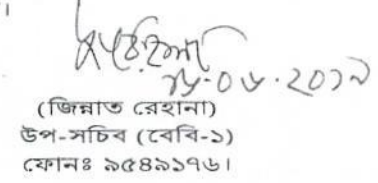 ।
১৮.০৬.২০১৯
(জিন্নাত রেহানা)
উপ-সচিব (বেবি-১)
ফোনঃ ৯৫৪৯১৭৬।